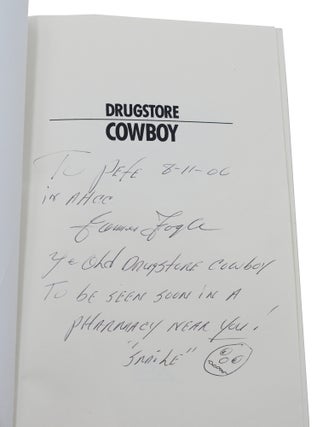 DRUGSTORE
COWBOY
To Pete 8-11-06
in AHCC
James Fogle
Ye Old DRUGSTORE COWBOY
To be SEEN SOON IN A
PHARMACY NEAR YOU!
"SMILE"